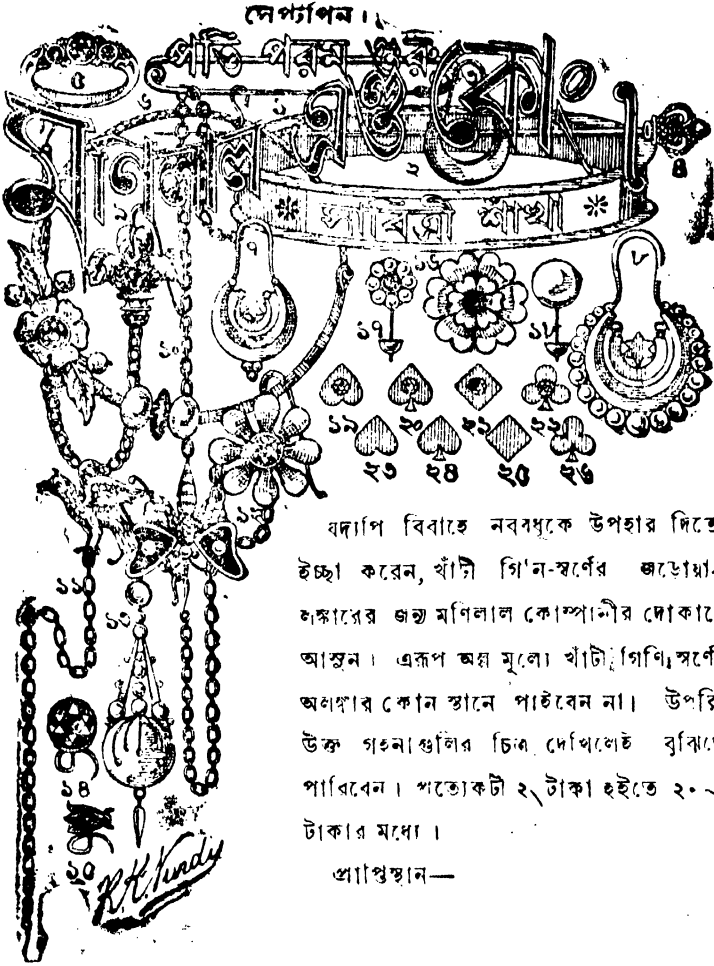 সেপ্টাপিন।
পতি পরম গুরু
মণিলাল এণ্ড কোং
সাবিত্রী শাঁখা
৫
৬
১
২
৪
৭
১৬
৮
১৭
১৮
১০
১৯ ২০ ২১ ২২
২৩ ২৪ ২৫ ২৬
১২
১১
১৩
১৪
১৫
R.K. Nundy
যদ্যপি বিবাহে নববধূকে উপহার দিতে
ইচ্ছা করেন, খাঁটী গি'ন-স্বর্ণের জড়োয়া-
লঙ্কারের জন্য মণিলাল কোম্পানীর দোকানে
আসুন। এরূপ অল্প মূল্যে খাঁটী গিণি স্বর্ণে
অলঙ্কার কোন স্থানে পাইবেন না। উপরি
উক্ত গহনাগুলির চিত্র দেখিলেই বুঝিতে
পারিবেন। প্রত্যেকটী ২৲ টাকা হইতে ২০৲
টাকার মধ্যে।
প্রাপ্তিস্থান—